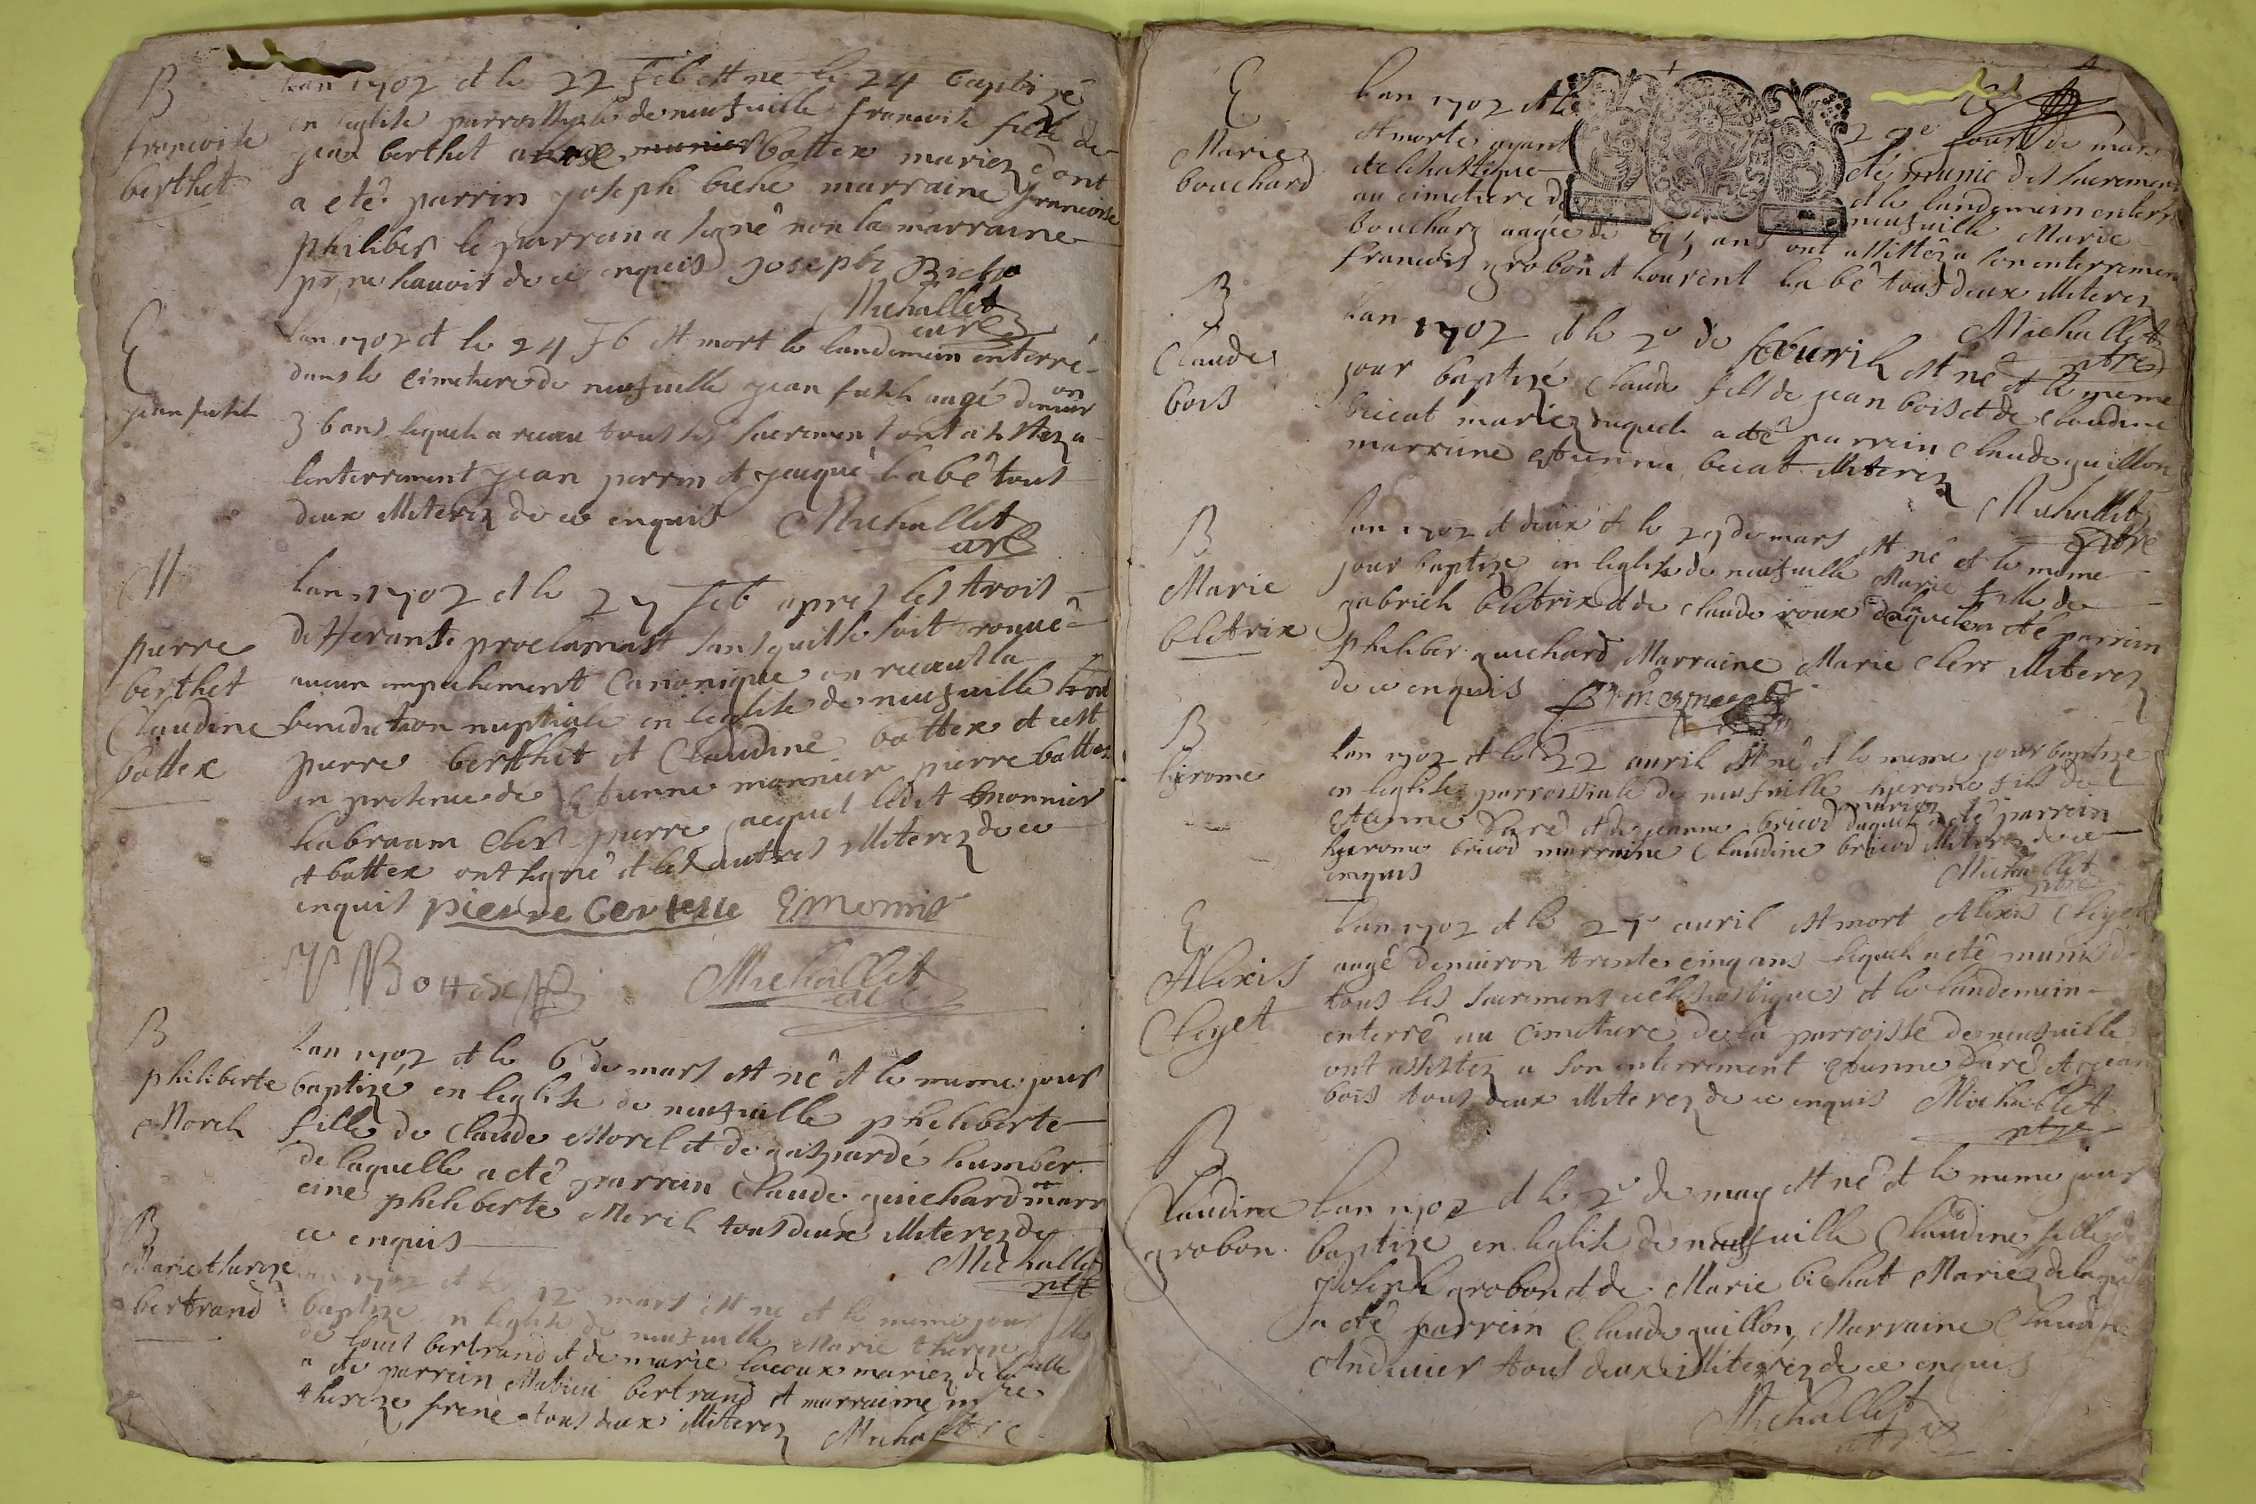 B
francoise
berthet
Lan 1702 et le 22 Feb est ne le 24 baptizé
en leglise parroissiale de neufuille francoise fille de
jean berthet
battex mariez dont
a eté parrin joseph biche marraine francoise
philiber le parrain a signé non la marraine
pr ne scauoir de ce enquis joseph Biche
Michallet
curé
E
jean futih
lan 1702 et le 24 Fb est mort le landemain enterré
dans le cimetiere de neufuille jean futih aagé denuiron
36 ans lequel a receu tous les sacremens ont assistez a
lenterrement jean perrin et jaque labé tous
deux illiterez de ce enquis Michallet
curé
M
pierre
berthet
Claudine
battex
lan 1702 et le 27 Feb apres les trois
differante proclamast sans quil se soit trouué
aucun empechement Canonique on receust la
benediction nuptiale en leglise de neufuille
pierre berthet et Claudine battex et cest
en presence de Etienne monnier pierre battex
habraam Cler pierre jacquet ledit monnier
et battex ont signé et les autres illiterez de ce
enquis pierre berthet E monnier
P Battex
Michallet
curé
B
philiberte
Morel
Lan 1702 et le 6e de mars est né et le meme jour
baptizé en leglise de neufuille philiberte
fille de Claude Morel et de gaspardé humber
de laquelle a eté parrein Claude guichard marr
eine philiberte Morel tous deux illiterez de
ce enquis
Michallet
ptre
B
Marie thereze
bertrand
lan 1702 et le 12 mars est ne et le meme jour
baptize en leglise de neufuille Marie thereze fille
de louis bertrand et de marie lacoux mariez de laquelle
a eté parrein Mathieu bertrand et marraine
thereze frene tous deux illiterez Michallet ptre
E
Marie
bouchard
Lan 1702 et le 27e jour de mars
est morte ayant eté munie des sacremens
et le landemain enterré
au cimetiere de neufuille Marie
bouchard aagée de ans ont assistéz a son enterrement
francois grobon et laurent labé tous deux illiterez
Michallet
ptre
B
Claude
bois
Lan 1702 et le 2e de feburil est né et le meme
jour baptizé Claude fils de jean bois et de Claudine
bicat mariez duquel a eté parrein Claude guillon
marraine etienna bicat illiterez
Michallet
ptre
B
Marie
bletrix
lan 1702 et deux et le 29 de mars est né et le meme
jour baptize en leglise de neufuille Marie fille de
gabriel bletrix et de Claude roux de laquelle a eté parrein
philiber guichard Marraine Marie Clerc illiterez
de ce enquis
B
hjerome
Lan 1702 et le 22 auril est né et le meme jour baptize
en leglise parroissiale de neufuille hjerome fils de
etienne Daré et de jeanne bricod mariez duquel a eté parrein
hjerome bricod marraine Claudine bricod illiterez de ce
enquis
Michallet
ptre
E
Alexis
Cliget
Lan 1702 et le 27e auril est mort Alexis Cliget
aagé denuiron trente cinq ans lequel a eté munis de
tous les sacremens eclesiastiques et le landemain
enterré au cimetiere de la parroisse de neufuille
ont assistez a son enterrement etienne Daré et jean
bois tous deux illiterez de ce enquis Michallet
ptre
B
Claudine
grobon
Lan 1702 et le 2e de may est né et le meme jour
baptize en leglise de neufuille Claudine fille de
joseph grobon et de Marie bichat Mariez de laquelle
a eté parrein Claude guillon Marraine Claudine
Anduier tous deux illiterez de ce enquis
Michallet
ptre